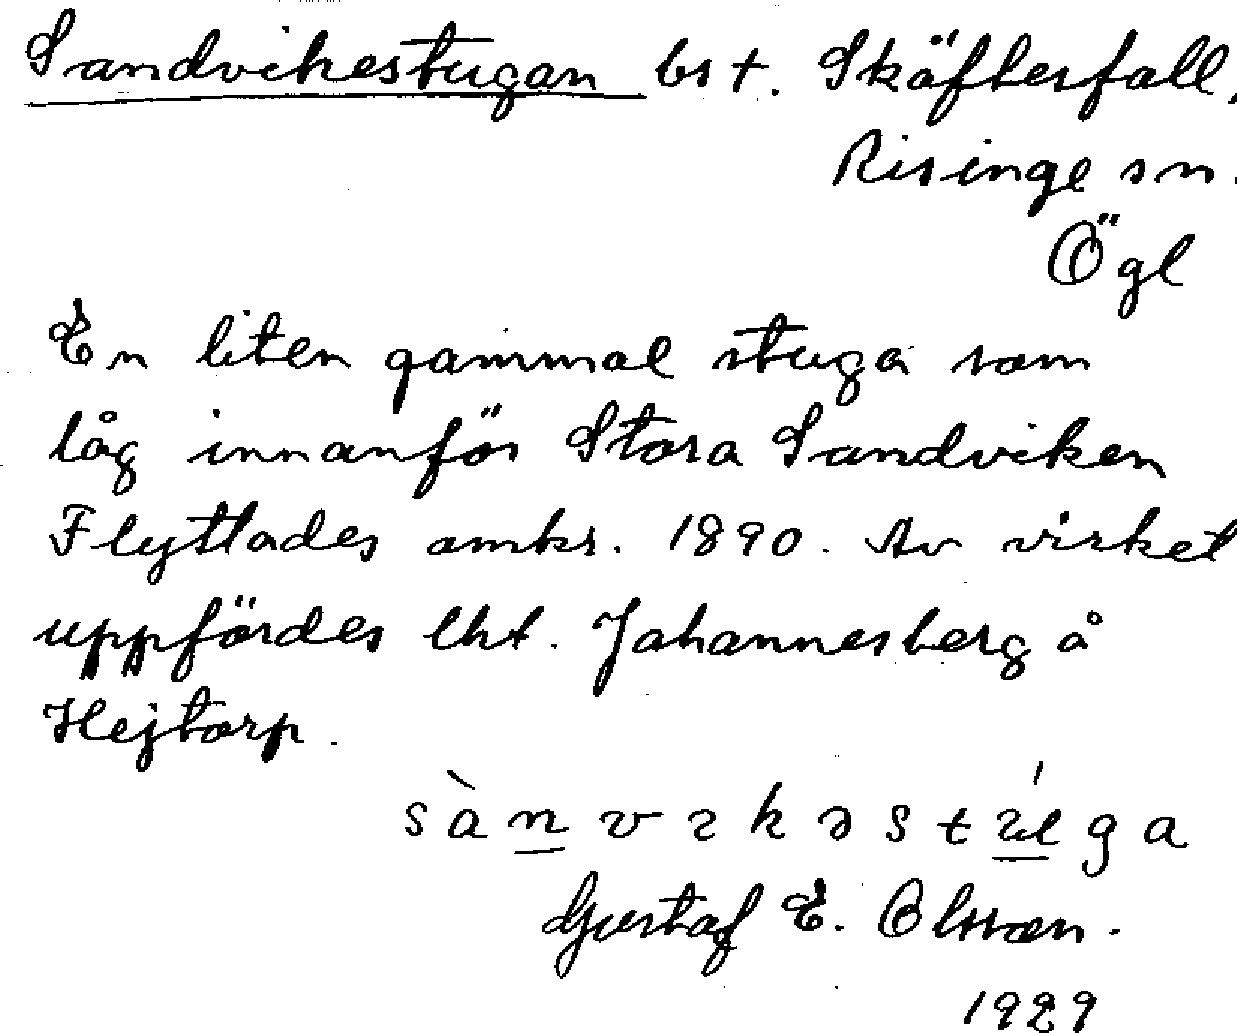 Sandvikestugan bst. Skäfterfall,
Risinge sn.
Ögl
En liten gammal stuga som
låg innanför Stora Sandviken
Flyttades omkr. 1890. Av virket
uppfördes lht. Johannesberg å
Hejtorp.
sànvɪkəstúga
Gustaf E. Olsson.
1929